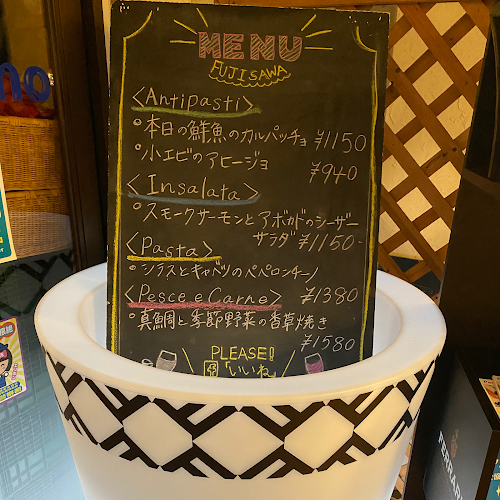 MENU
FUJISAWA
<Antipasti>
°本日の鮮魚のカルパッチョ ¥1150
°小エビのアヒージョ ¥940
<Insalata>
°スモークサーモンとアボカドのシーザー
サラダ ¥1150-
<Pasta>
°シラスとキャベツのペペロンチーノ
¥1380
<Pesce e Carne>
°真鯛と季節野菜の香草焼き
¥1580
PLEASE!
"いいね"